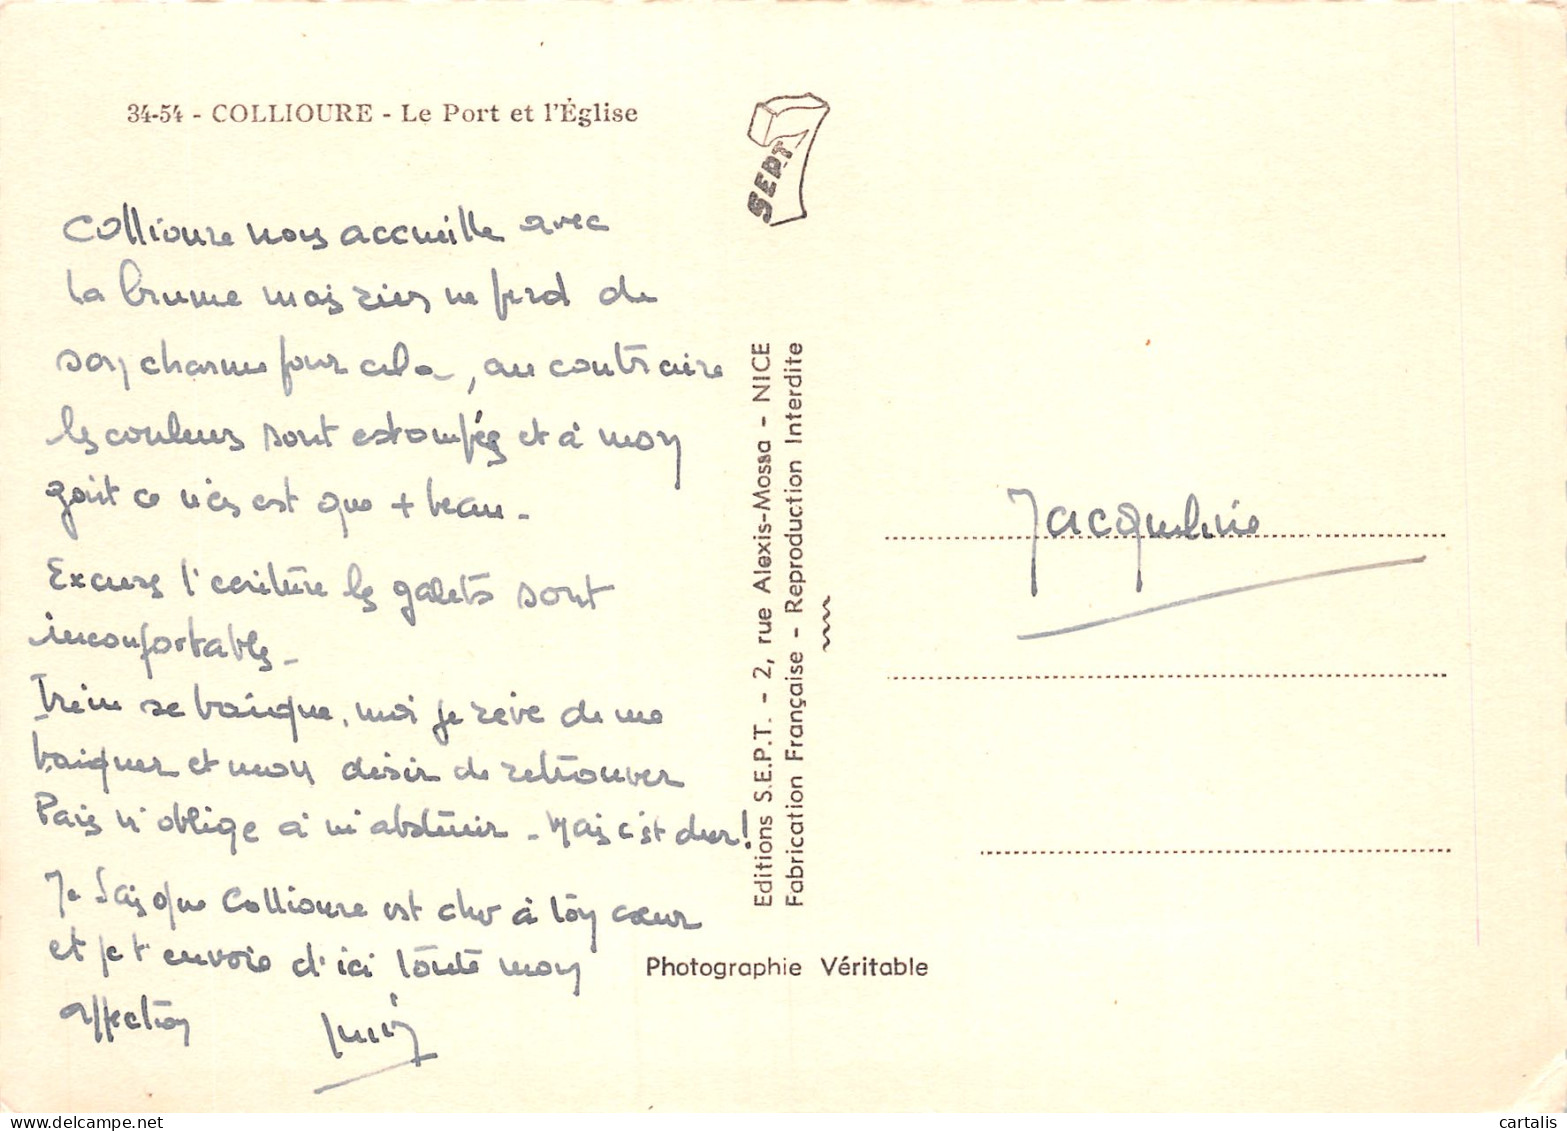 34-54 - COLLIOURE - Le Port et l'Église
SEPT
Collioure nous accueille avec
la brume mais rien ne perd de
son charme pour cela, au contraire
les couleurs sont estompés et à mon
goût ce n'en est que + beau -
Excuse l'écriture les galets sont
inconfortables -
se baigne, moi je rêve de me
baigner et mon désir de retrouver
m'oblige à m'abstenir - Mais c'est dur!
Je sais que Collioure est cher à ton cœur
et je t'envoie d'ici toute mon
affection
Jacqueline
Editions S.E.P.T. - 2, rue Alexis-Mossa - NICE
Fabrication Française - Reproduction Interdite
Photographie Véritable
cartalis